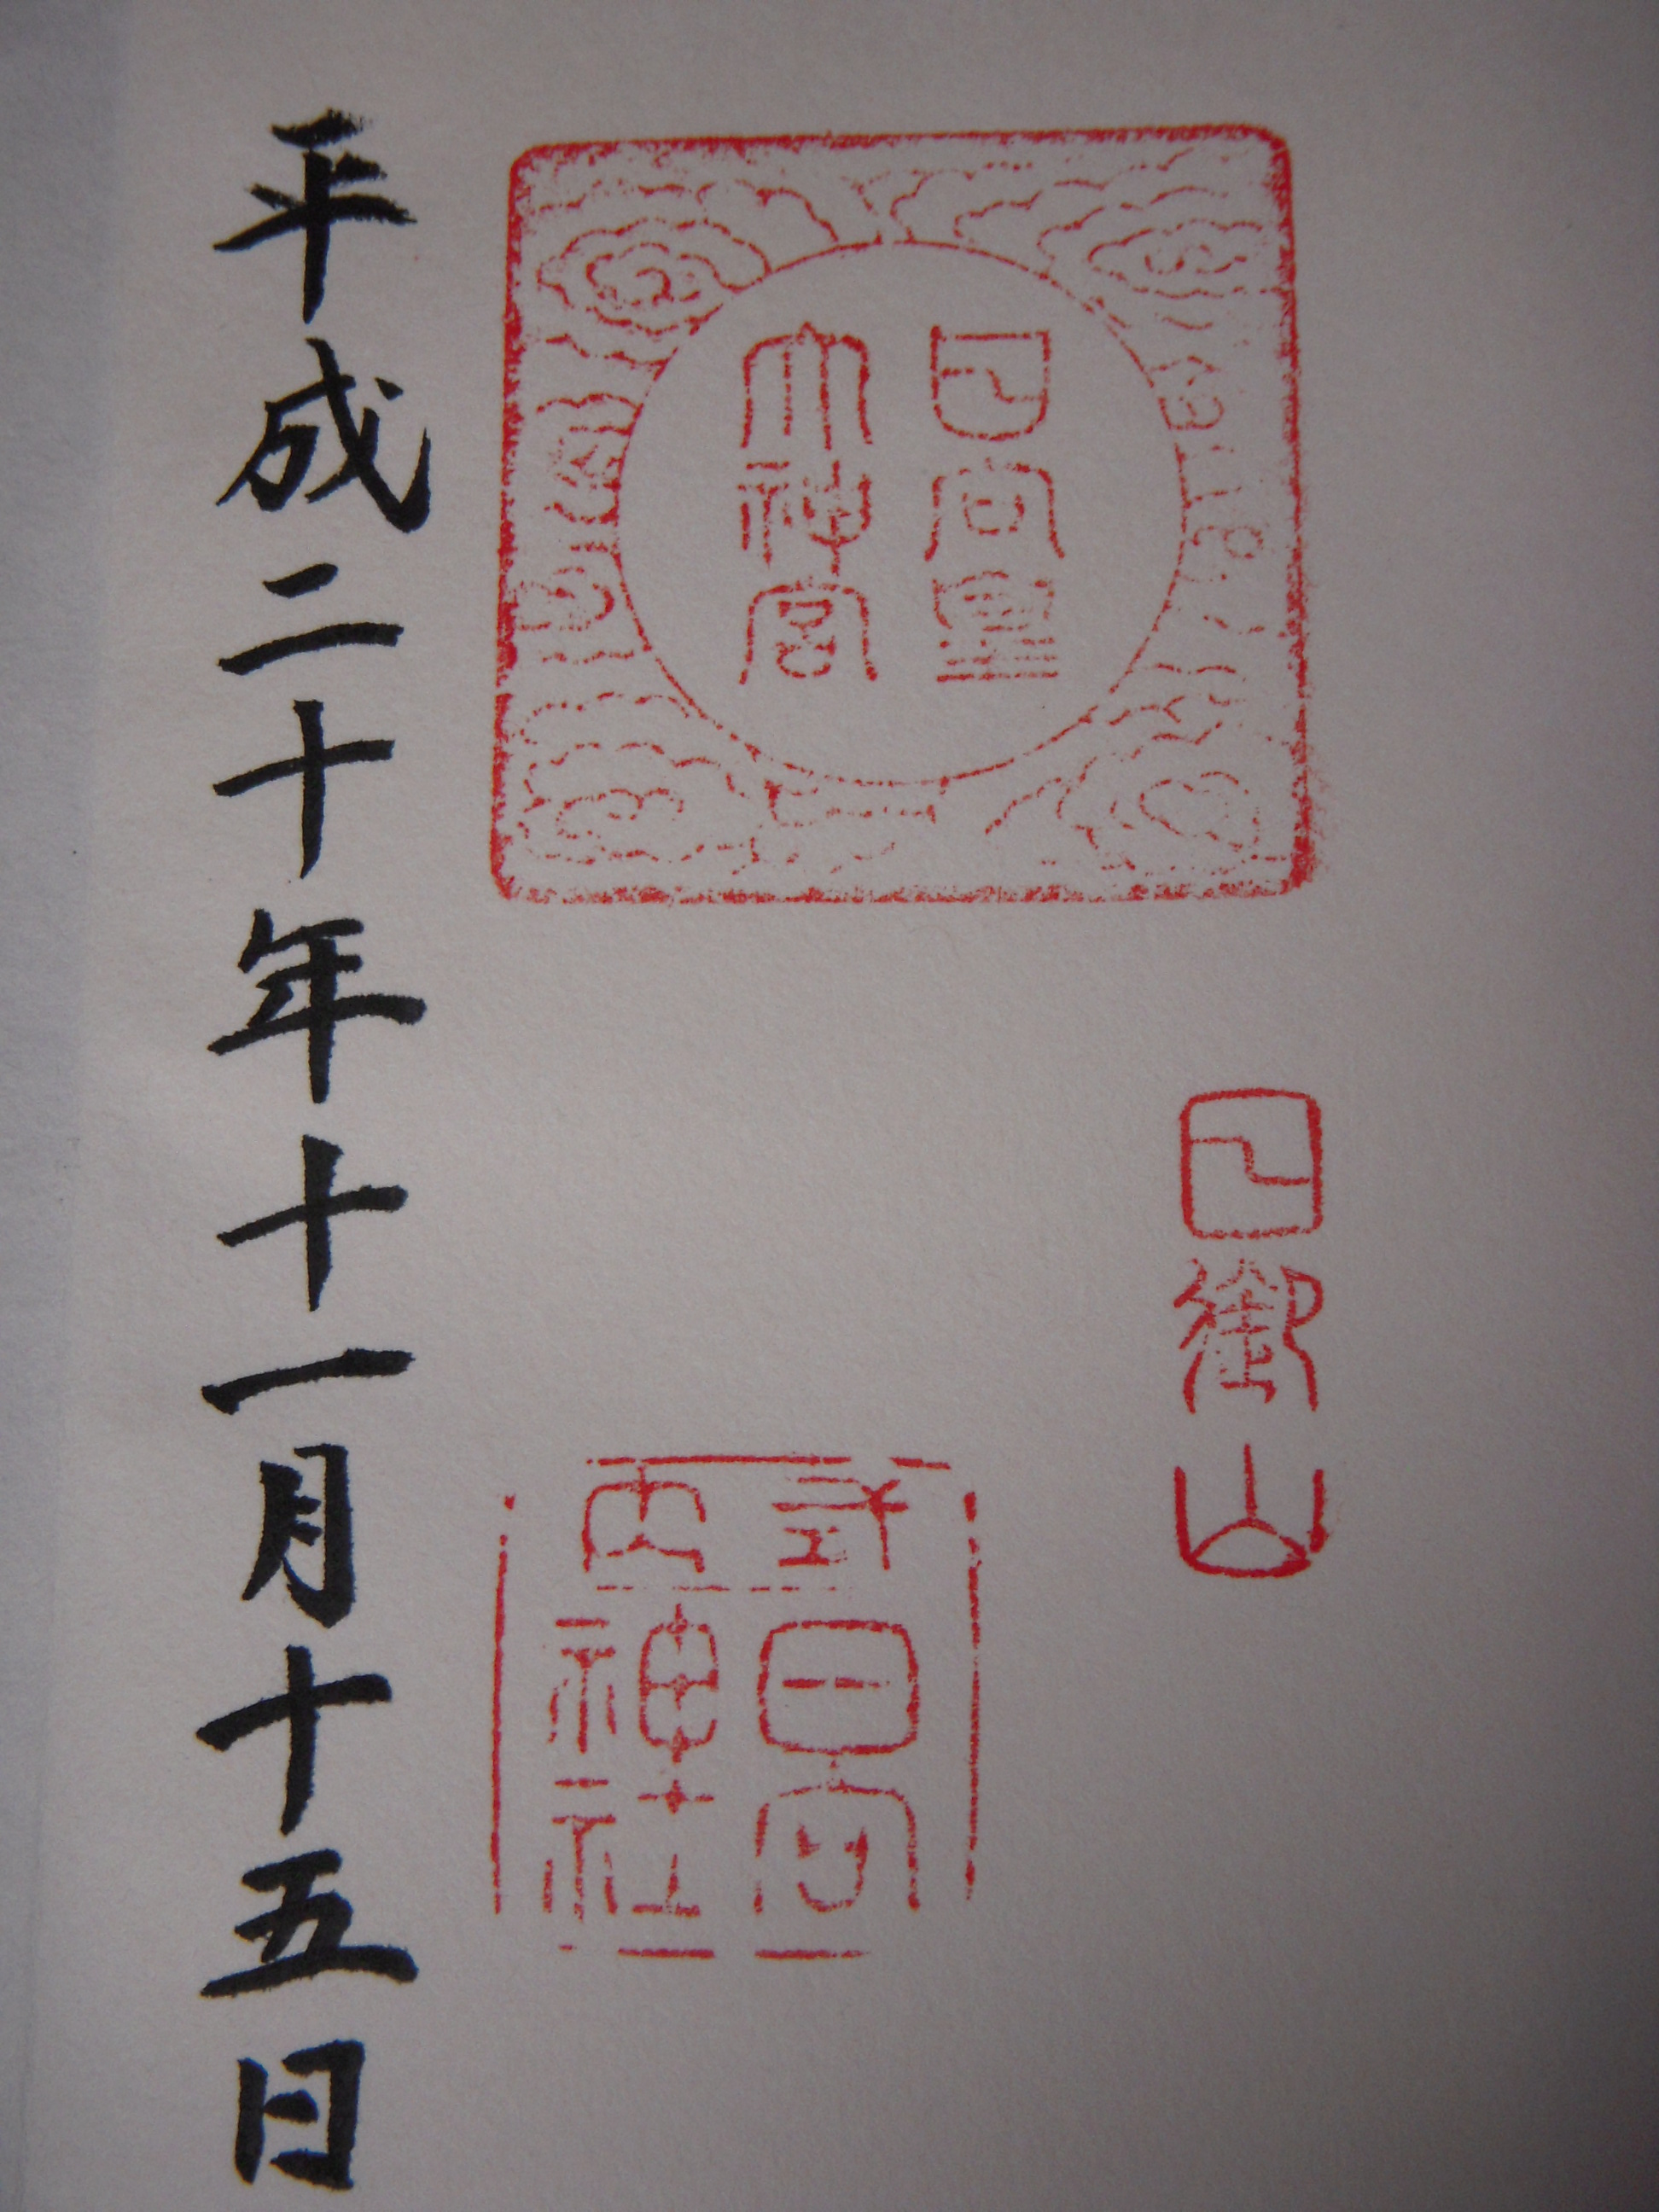 日御山
日向皇
大神宮
式内
日向
神社
平成二十年十一月十五日